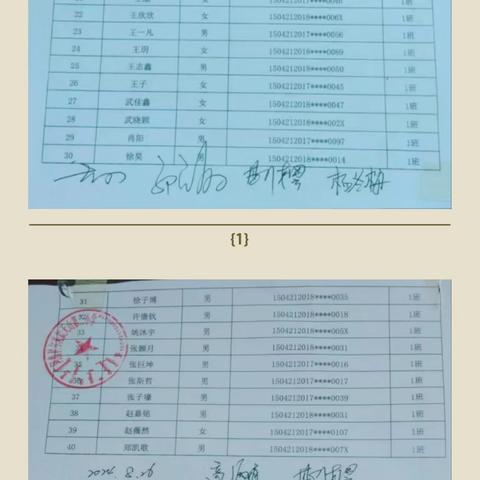 22 王欣欣 女 1504212018****006X 1班
23 王一凡 男 1504212017****0056 1班
24 王玥 女 1504212018****0089 1班
25 王志鑫 男 1504212018****0050 1班
26 王子 女 1504212017****0045 1班
27 武佳鑫 女 1504212018****0047 1班
28 武晓颖 女 1504212018****002X 1班
29 肖阳 男 1504212017****0097 1班
30 徐昊 男 1504212018****0014 1班
{1}
31 徐子博 男 1504212018****0035 1班
32 许唐钦 男 1504212018****0018 1班
33 姚沐宇 男 1504212018****005X 1班
张颢月 男 1504212018****0031 1班
35 张巨坤 男 1504212017****0016 1班
36 张斯哲 男 1504212018****0017 1班
37 张子壕 男 1504212018****0039 1班
38 赵嘉铭 男 1504212018****0031 1班
39 赵珮然 女 1504212017****0107 1班
40 郑凯歌 男 1504212018****007X 1班
2024.8.26